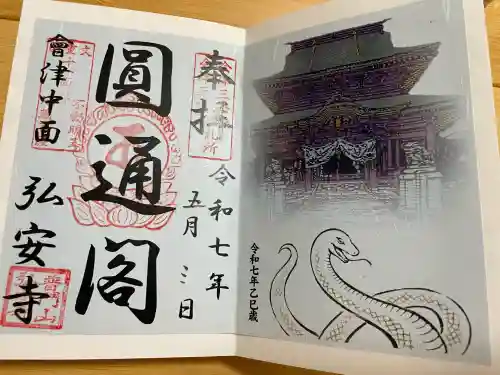 奉拝
令和七年
五月三日
圓通閣
會津中面
弘安寺
普門山
令和七年乙巳歳